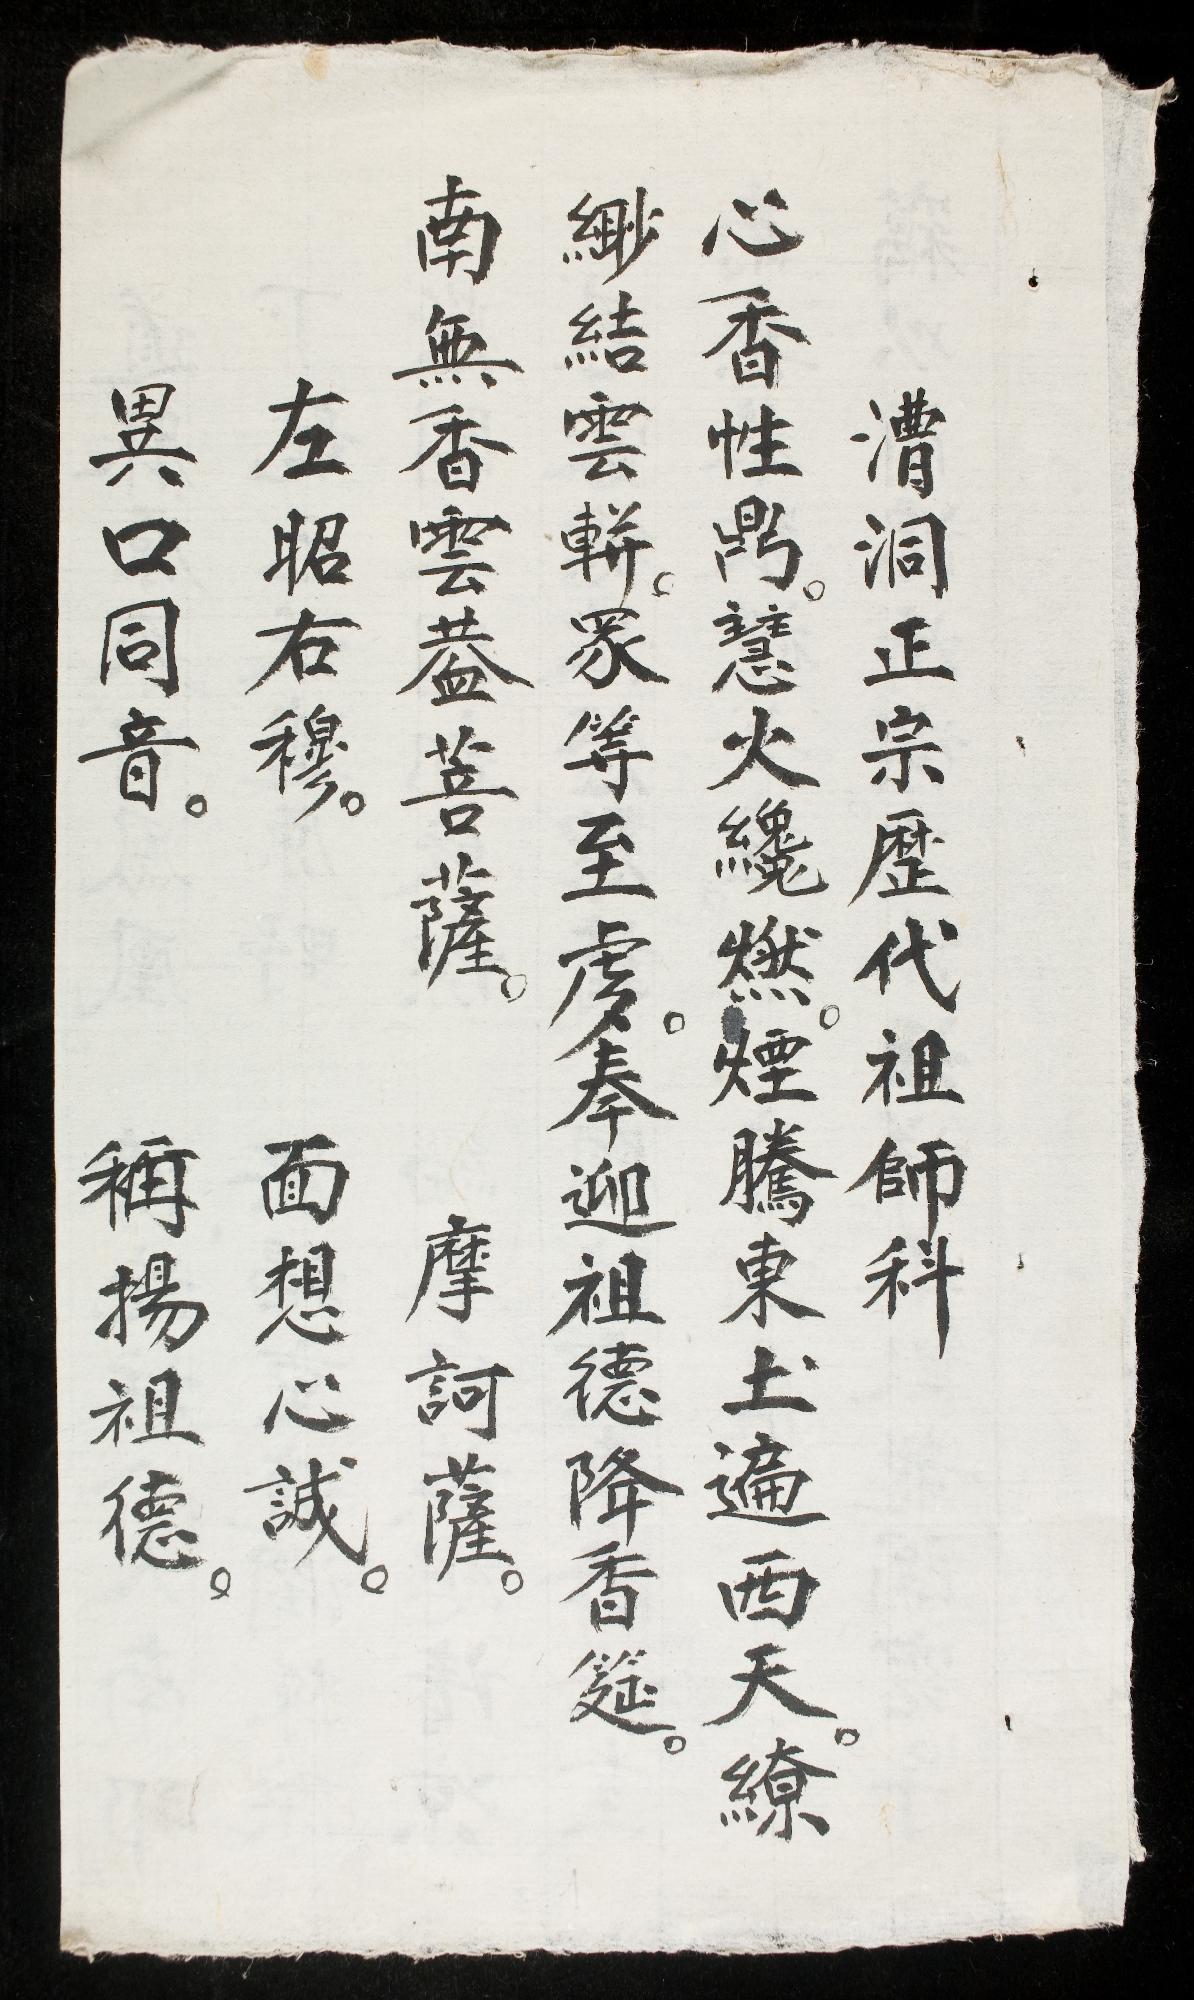 漕洞正宗歷代祖師科
心香性鼎。慧火纔燃。煙騰東土遍西天。繚
緲結雲軿。眾等至虔。奉迎祖德降香筵。
南無香雲蓋菩薩。 摩訶薩。
左昭右穆。 面想心誠。
異口同音。 稱揚祖德。